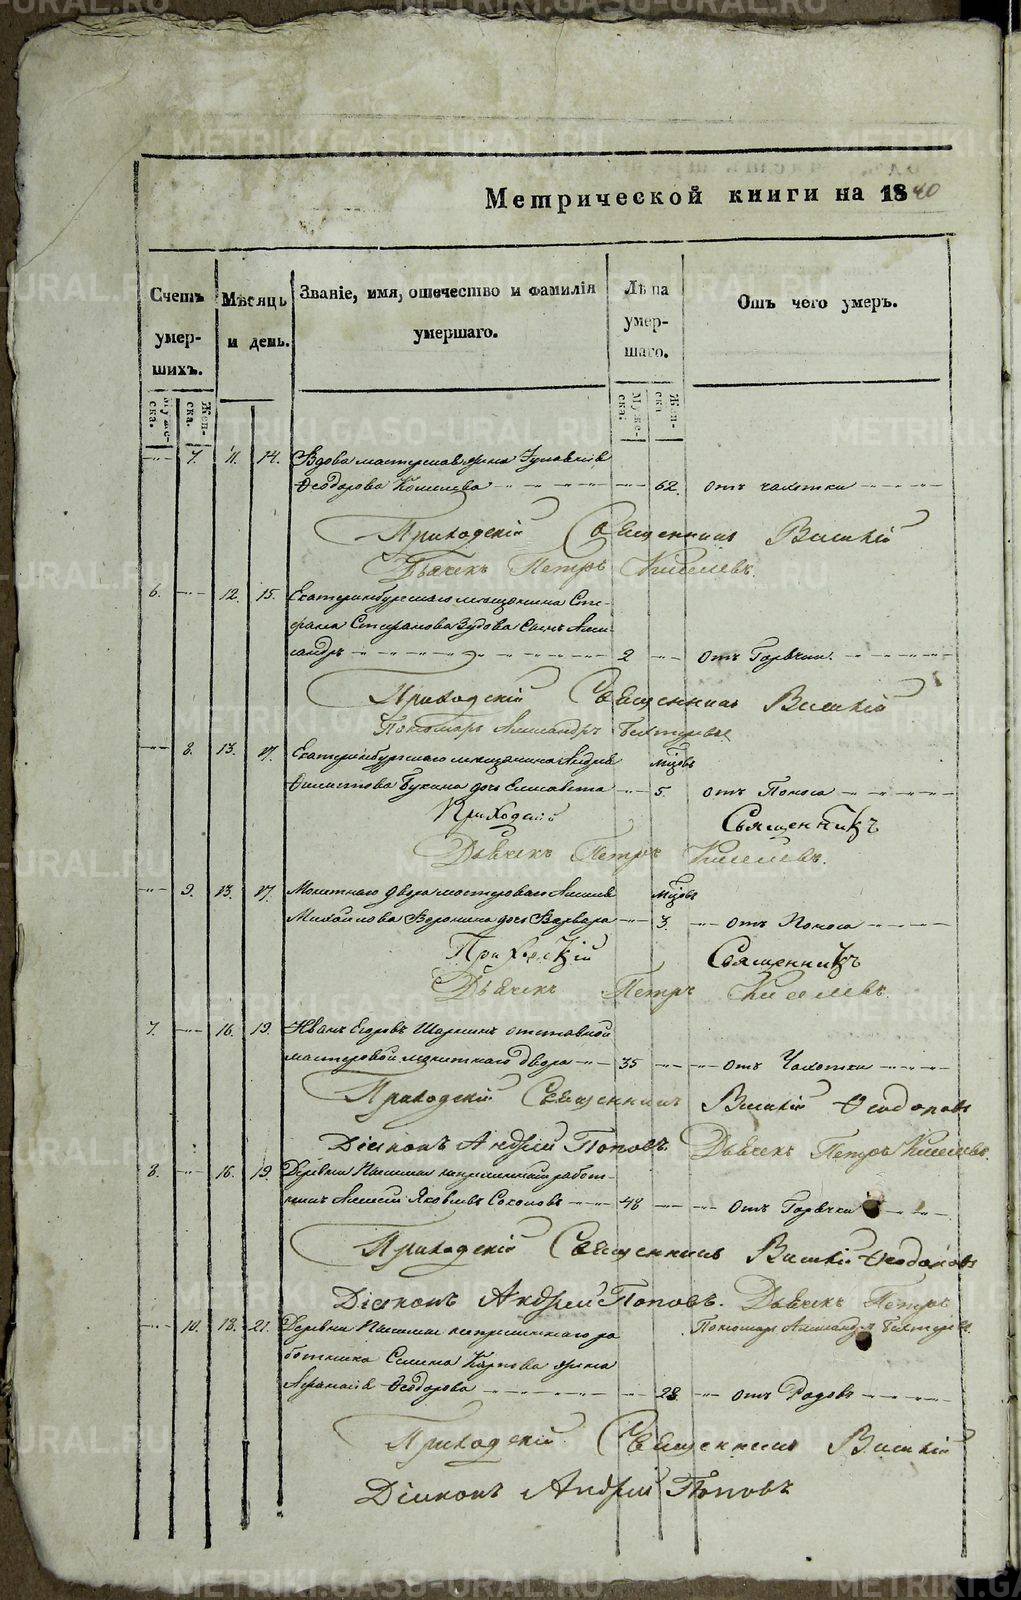 Метрической книги на 1840
Счетъ умершихъ.
Мужеска.
Женска.
Мѣсяцъ и день.
Званіе, имя, отечество и фамилія умершаго.
Лѣта умершаго.
Мужеска.
Женска
Отъ чего умеръ.
7. 11. 14. Вдова мастерская жена
Ѳеодорова 62. отъ чахотки
Приходскій Священникъ Василій
Дьячекъ Петръ Киселевъ.
6. 12. 15. Екатеринбургскаго мещанина Сте-
фана Стефанова сынъ Алек-
сандръ 2 отъ Горячки.
Приходскій Священникъ Василій
Пономарь Александръ
8. 13. 17. Екатеринбургскаго мещанина
дочь Елисавета 5. отъ Поноса
Приходскій Священникъ
Дьячекъ Петръ Киселевъ.
9. 13. 17. Монетнаго двора мастероваго
Михайлова Воронина дочь Варвара 3. отъ Поноса
Приходскій Священникъ
Дьячекъ Петръ Киселевъ.
7. 16. 19. Иванъ Егоровъ отставной
мастеровой монетнаго двора 35 отъ Чахотки
Приходскій Священникъ Василій Ѳеодоровъ
Діаконъ Андрей Поповъ. Дьячекъ Петръ Киселевъ.
8. 16. 19. Деревни непременный работ-
никъ Алексей Яковлевъ Соколовъ 48 отъ Горячки
Приходскій Священникъ Василій Ѳеодоровъ
Діаконъ Андрей Поповъ. Дьячекъ Петръ
Пономарь Александръ
10. 18. 21. Деревни непременнаго ра
ботника Карпова жена
Ѳеодорова 28. отъ Родовъ
Приходскій Священникъ Василій
Діаконъ Андрей Поповъ
METRIKI.GASO-URAL.RU